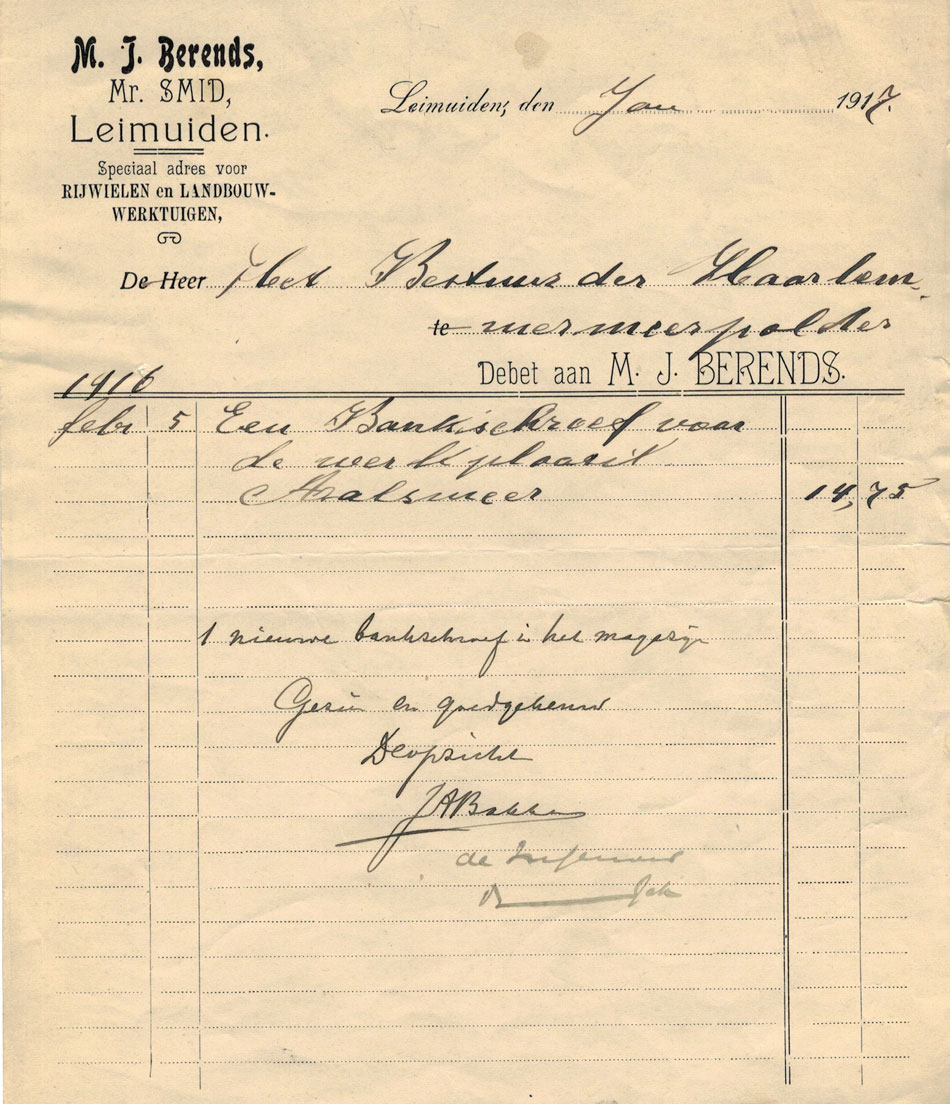 M. J. Berends,
Mr. SMID,
Leimuiden.
Speciaal adres voor
RIJWIELEN en LANDBOUW-
WERKTUIGEN,
Leimuiden, den Jan 1917.
De Heer Het Bestuur der Haarlem-
te mermeerpolder
Debet aan M. J. BERENDS.
1916
febr 5 Een Bankschroef voor
de werkplaats
Aalsmeer 14,75
1 nieuwe bankschroef in het magazijn
Gezien en goedgekeurd
De opzicht
JABakker
de Ingenieur